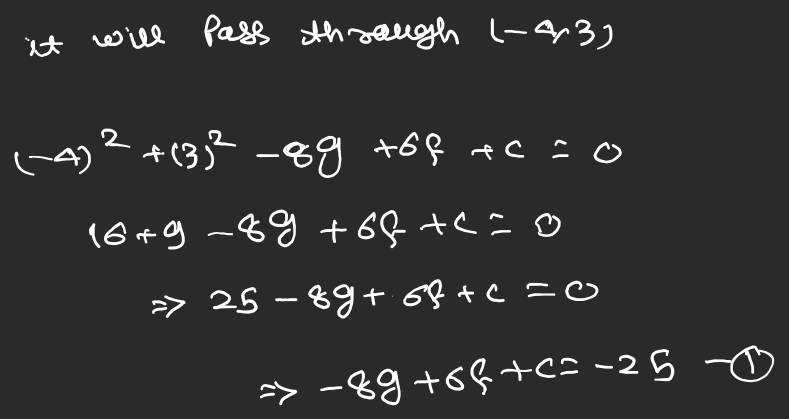 it will Pass through (-4,3)
(-4)² + (3)² - 8g + 6f + c = 0
16 + 9 - 8g + 6f + c = 0
⇒ 25 - 8g + 6f + c = 0
⇒ -8g + 6f + c = -25 - ①